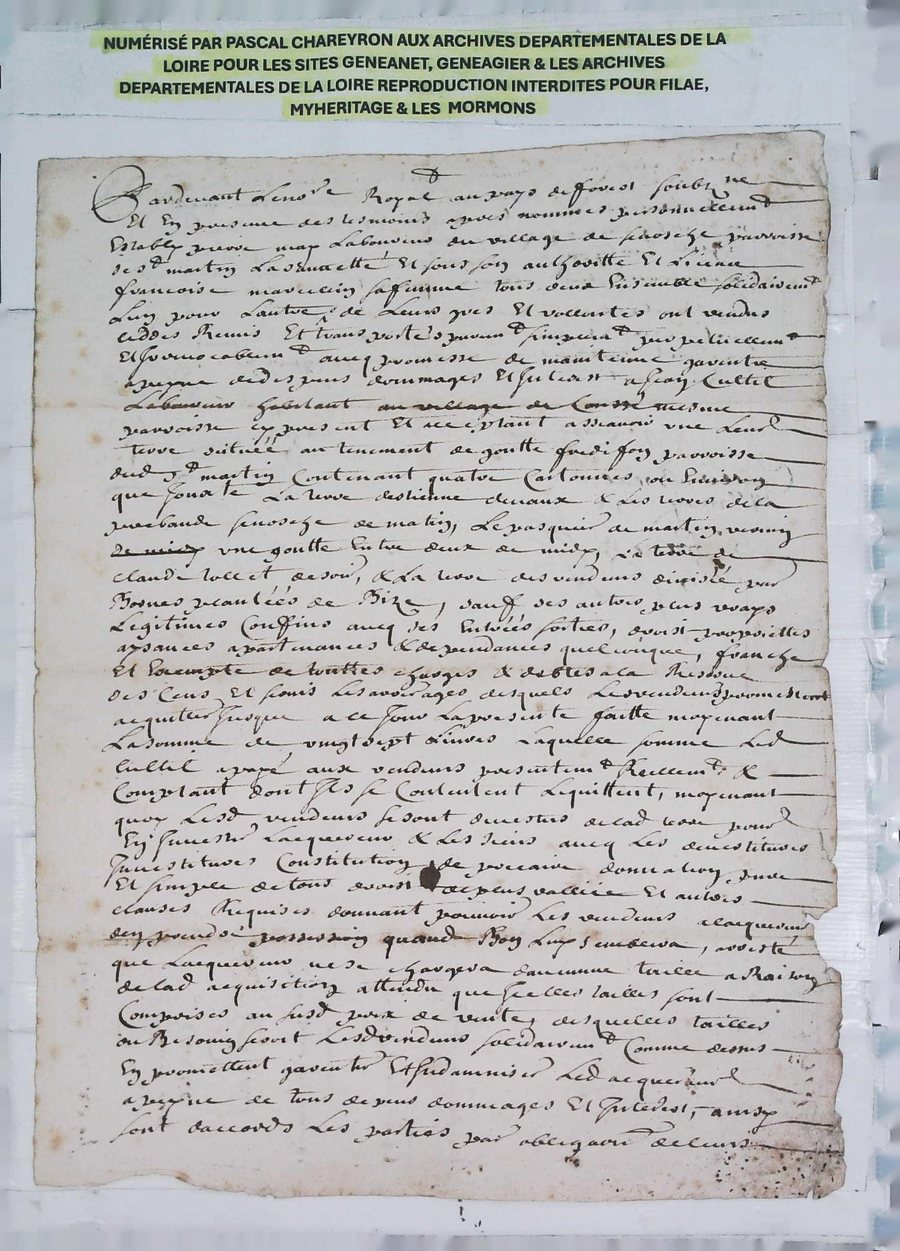 NUMÉRISÉ PAR PASCAL CHAREYRON AUX ARCHIVES DEPARTEMENTALES DE LA
LOIRE POUR LES SITES GENEANET, GENEAGIER & LES ARCHIVES
DEPARTEMENTALES DE LA LOIRE REPRODUCTION INTERDITES POUR FILAE,
MYHERITAGE & LES MORMONS
Pardevant Le no.re Royal au pays de forest soubz.ne
Et En presence des tesmoins apres nommes personnellemt
Estably pierre may Laboureur du village de parroisse
de st martin La sauvetté Et soubs son authorité Et Licence
francoise marcellin sa femme tous deux Ensemble solidairemt
L'un pour L'autre de Leurs gres Et vollontes ont vendus
ceddes Remis Et transportés purem.t simplem.t perpetuellemt
Et Irrevocablem.t avecq promesse de maintenir garentir
a peyne de despens dommages Et Interest a Jean Cultil
Laboureur habitant au village de mesme
parroisse cy present Et acceptant assavoir une Leur
terre scituée au tenement de goutte parroisse
dud st martin Contenant quatre Cartonnées ou Environ
que Jouxte La terre destienne devaux & Les terres de la
prebande de matin, Le pasquier de martin
une goutte Entre deux de midy, La terre de
claude de soir, & La terre des vendeurs divisée par
Bornes plantéés de Bize, sauf ses autres plus vrays
Legitimes Confins avecq ses Entréés sorties, droist proprietes
aysances apartenances & dependances quelconque, franche
Et Exempte de touttes charges & debtes a La Reserve
des Cens Et servis Les arrerages desquels Les vendeurs promettent
acquitter Jusque a ce Jour La presente faitte moyenant
La somme de vingt sept Livres Laquelle somme Led
Cultil a payé aux vendeurs presentem.t Reellem.t &
Comptant dont Ils se Contentent Le quittent, moyenant
quoy Lesd vendeurs se sont devestus de lad terre pour
En Investir Lacquereur & Les siens avecq Les devestitures
Investitures Constitution de precaire donnation pure
Et simple de tous droist de plus vallüe Et autres
clauses Requises donnant pouvoir Les vendeurs a lacquereur
den prendre possession quand Bon Luy semblera, arresté
que Lacquereur ne se chargera daucunne taille a Raison
de lad acquisition attendu que Icelles tailles sont
Comprises au susd prix de vente, desquelles tailles
ou Besoing seroit Lesd vendeurs solidairem.t Comme dessus
En promettent garentir Et Indamniser Led acquereur
a peyne de tous depens dommages Et Interest, ainsy
sont daccords Les parties par obligaon de leurs